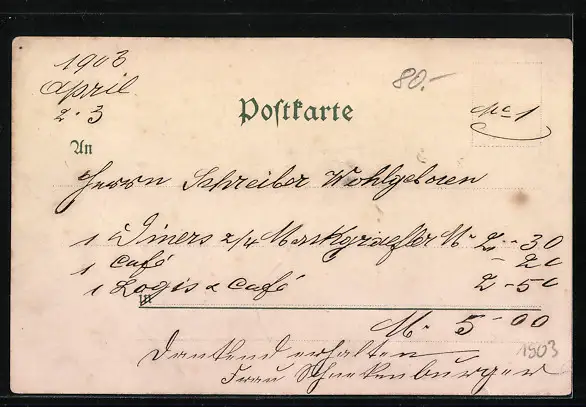 1903
April
2 · 3
80.-
Postkarte
No 1
An
Herrn Schreiber Wohlgeboren
1 Diners 2/4 Markgraefler M. 2 - 30
1 Café - 20
1 Logis & Café 2 - 50
M. 5 - 00
Dankend erhalten
1903
Frau Schneckenburger